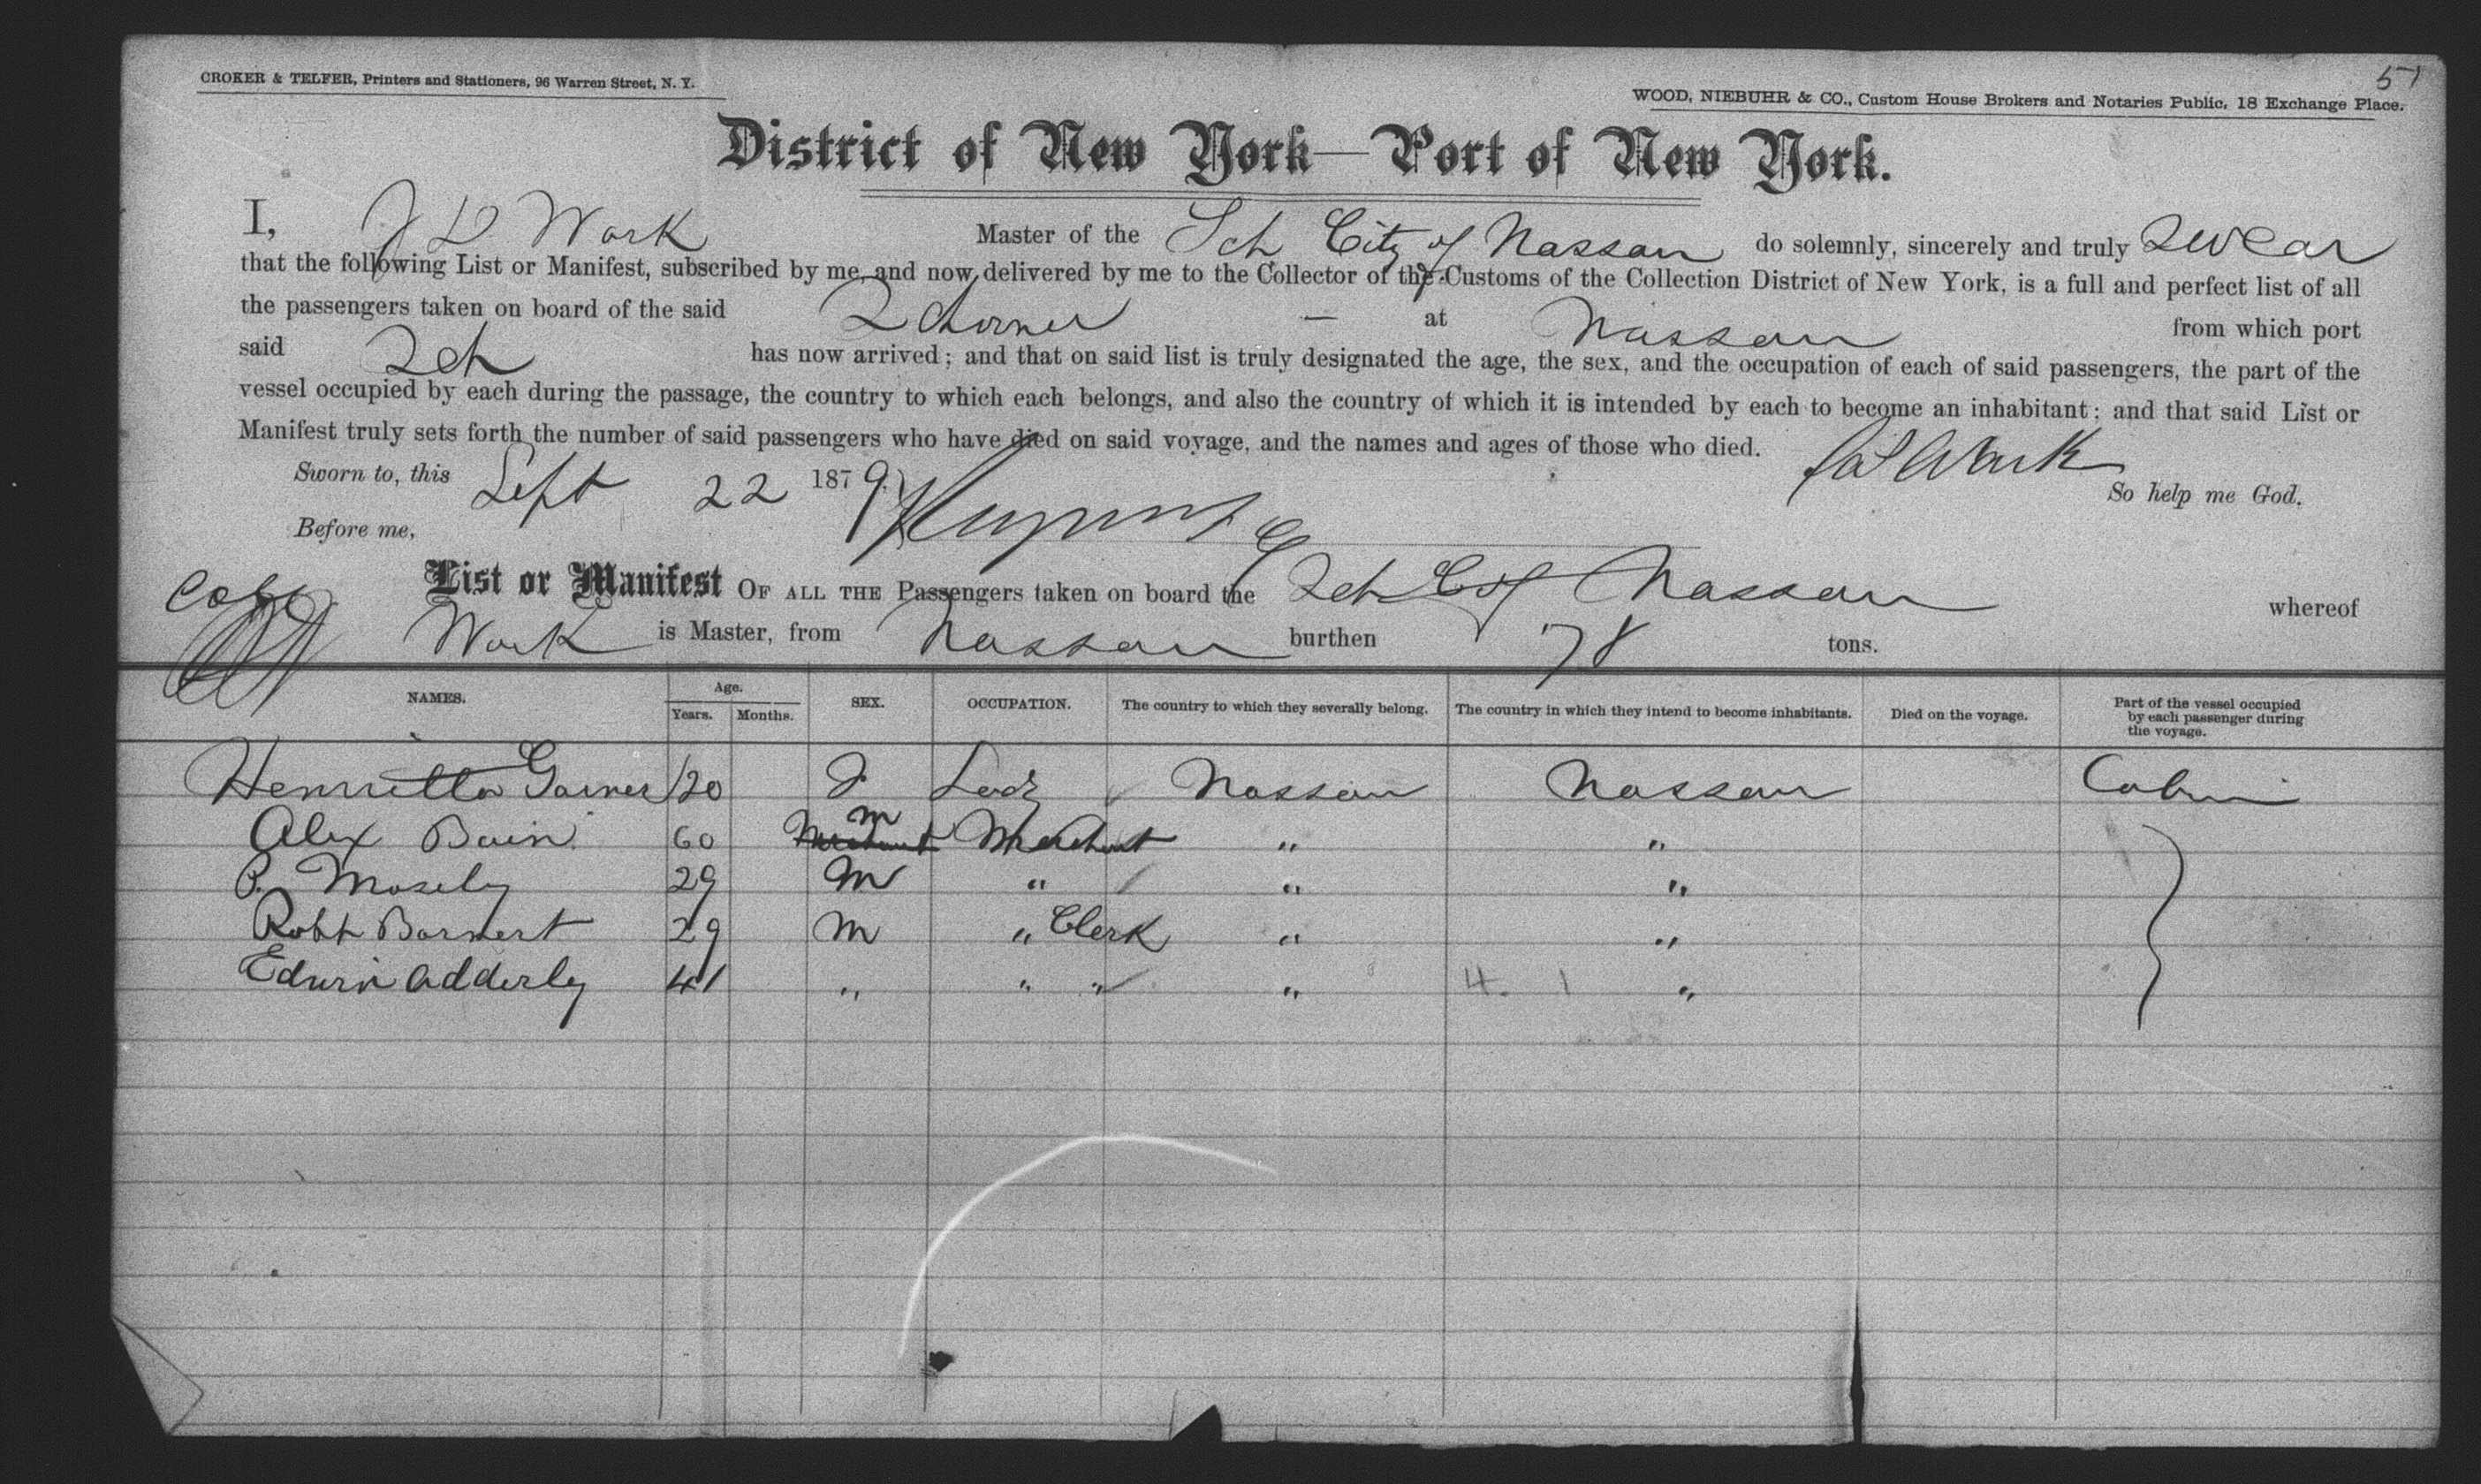 51
CROKER & TELFER, Printers and Stationers, 96 Warren Street, N. Y.
WOOD, NIEBUHR & CO., Custom House Brokers and Notaries Public, 18 Exchange Place.
District of New York—Port of New York.
I, J D Work Master of the Sch City of Nassau do solemnly, sincerely and truly swear
that the following List or Manifest, subscribed by me, and now delivered by me to the Collector of the Customs of the Collection District of New York, is a full and perfect list of all
the passengers taken on board of the said Schorner — at Nassau from which port
said Sch has now arrived; and that on said list is truly designated the age, the sex, and the occupation of each of said passengers, the part of the
vessel occupied by each during the passage, the country to which each belongs, and also the country of which it is intended by each to become an inhabitant; and that said List or
Manifest truly sets forth the number of said passengers who have died on said voyage, and the names and ages of those who died.
Work
Sworn to, this Sept 22 1879 So help me God.
Before me,
List or Manifest OF ALL THE Passengers taken on board the Sch C of Nassau whereof
Work is Master, from Nassau burthen 78 tons.
NAMES. Age. Years. Months. SEX. OCCUPATION. The country to which they severally belong. The country in which they intend to become inhabitants. Died on the voyage. Part of the vessel occupied by each passenger during the voyage.
Henrietta 20 F Lady Nassau Nassau Cabin
Alex Bain 60 m Merchant " "
P. Mosely 29 M " " "
Robt 29 M " Clerk " "
Edwin Adderly 41 " " " " 4. 1 "